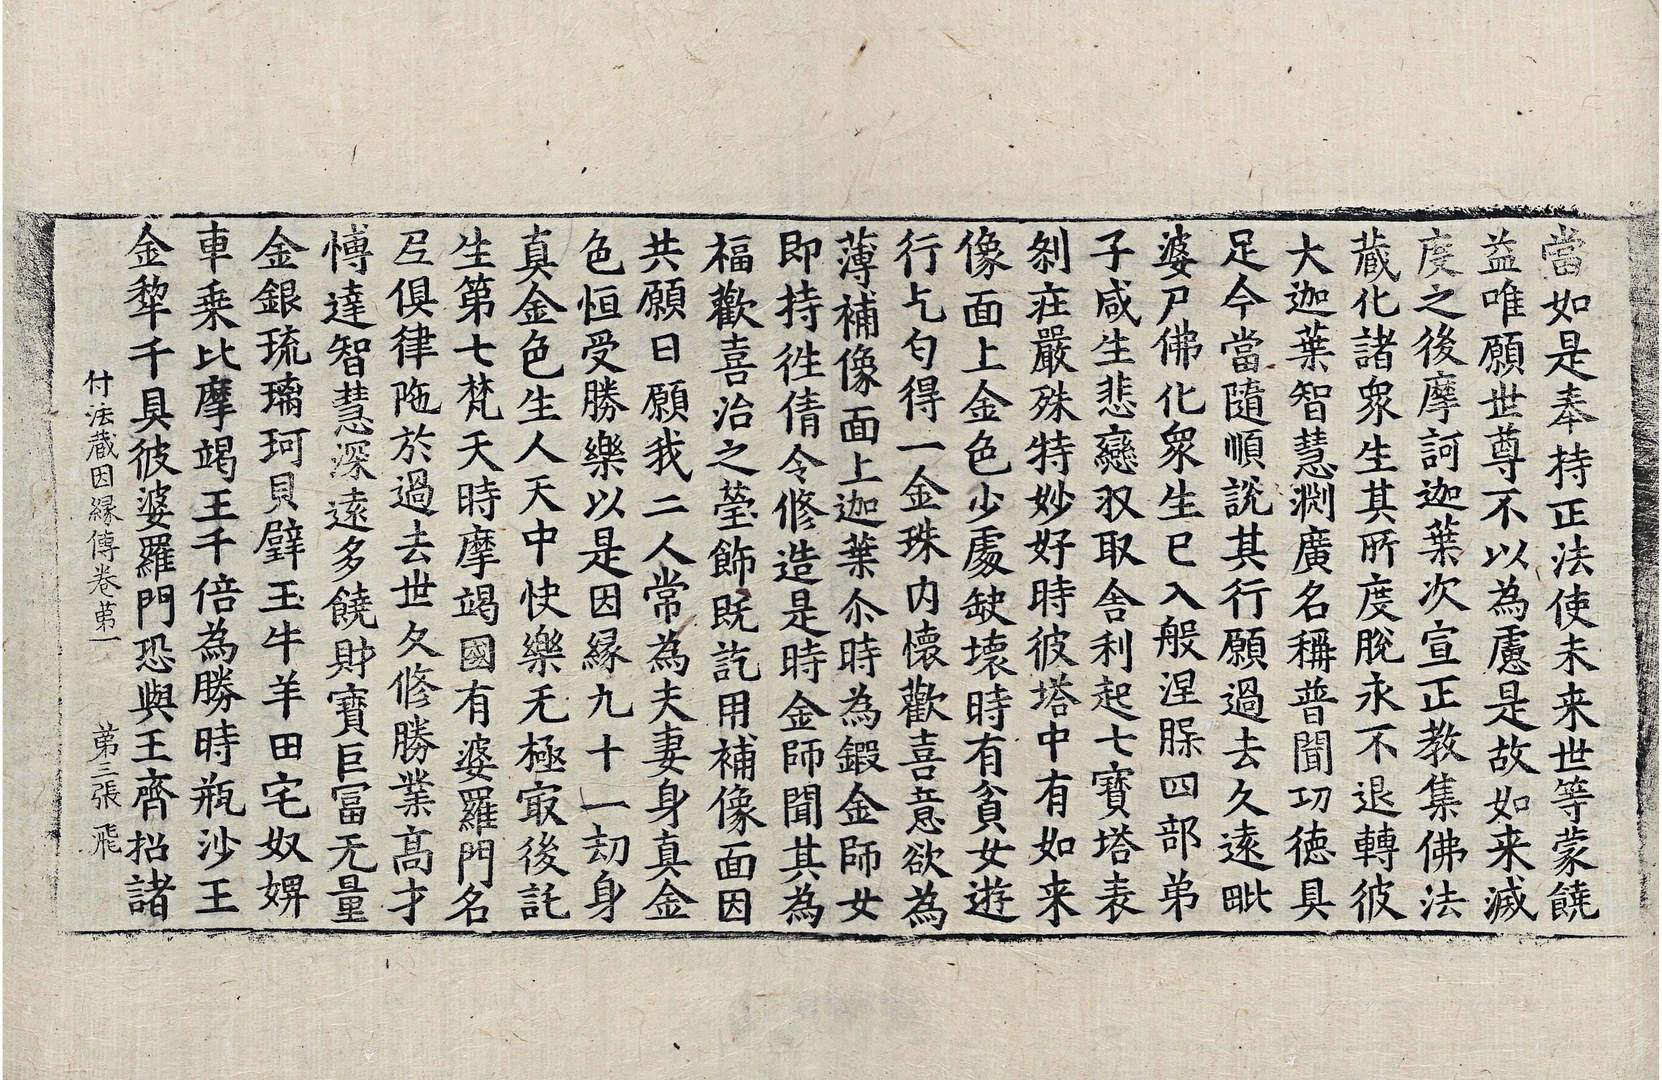 當如是奉持正法使未来世等蒙饒
益唯願世尊不以為慮是故如来滅
度之後摩訶迦葉次宣正教集佛法
藏化諸眾生其所度脫永不退轉彼
大迦葉智慧渕廣名稱普聞功徳具
足今當隨順說其行願過去久遠毗
婆尸佛化眾生已入般涅牒四部弟
子咸生悲戀収取舍利起七寶塔表
剎莊嚴殊特妙好時彼塔中有如来
像面上金色少處缺壞時有貧女遊
行乞匃得一金珠内懷歡喜意欲為
薄補像面上迦葉尒時為鍛金師女
即持往倩令修造是時金師聞其為
福歡喜治之瑩飾既訖用補像面因
共願曰願我二人常為夫妻身真金
色恒受勝樂以是因縁九十一劫身
真金色生人天中快樂无極㝡後託
生第七梵天時摩竭國有婆羅門名
尼俱律陁於過去世久修勝業高才
愽達智慧深遠多饒財寶巨冨无量
金銀琉璃珂貝璧玉牛羊田宅奴婢
車乗比摩竭王千倍為勝時瓶沙王
金犂千具彼婆羅門恐與王齊招諸
付法藏因縁傳卷苐一　苐三張　飛